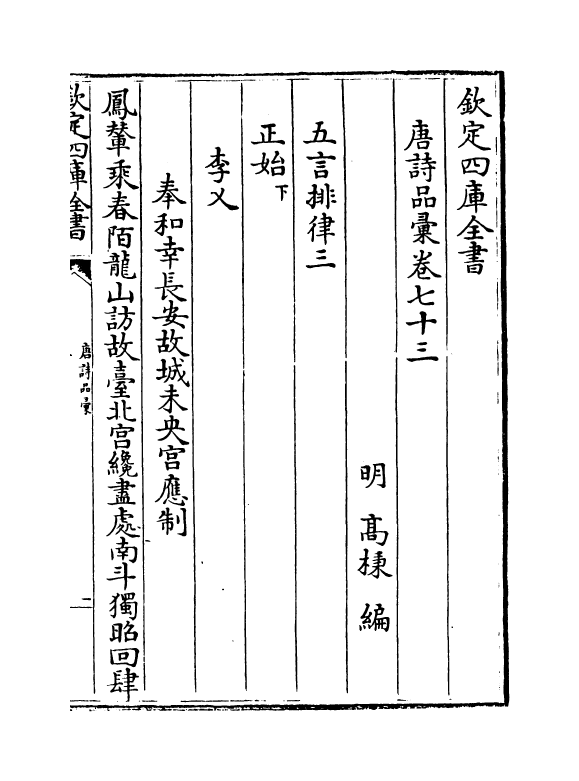 欽定四庫全書
唐詩品彙卷七十三
明 高棅 編
五言排律三
正始下
李乂
奉和幸長安故城未央宫應制
鳳輦乘春陌龍山訪故臺北宫纔盡處南斗獨昭回肆
欽定四庫全書
唐詩品彙
一